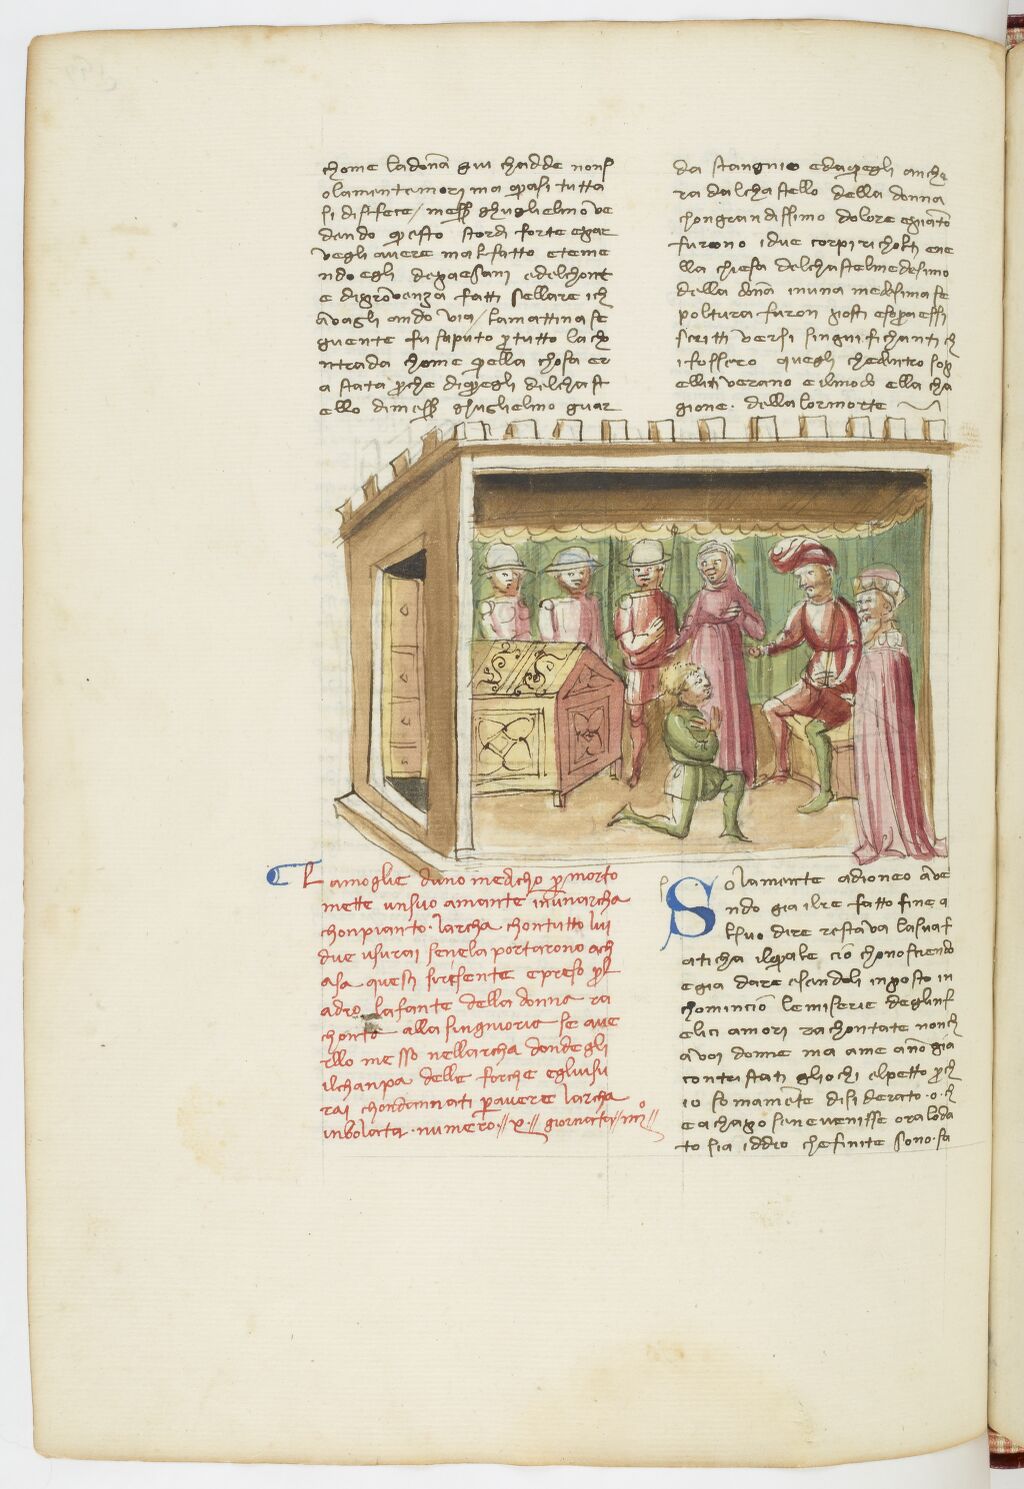 chome ladon̄a gui chadde nons
olamente mori ma quasi tutta
si disfece / mess̄ ghuglielmo ve
dendo questo stordi forte epar
vegli avere mal fatto eteme
ndo egli depaesani edelchont
e diprovenza fatti sellare ich
avagli ando via / lamattina se
guente fu saputo p̄ tutto lacho
ntrada chome quella chosa er
a stata p̄che diquegli delchast
ello dimess̄ ghuglielmo guar
da stangnio edaquegli ancho
ra dalchastello della donna
chongrandissimo dolore epianto
furono idue corpi richolti ene
lla chiesa delchastelmedesimo
della don̄a inuna medesima se
poltura furon posti esopraessi
scritti versi singnifichanti ch
ifossero quegli chedentro sep
elliti verano eilmodo ella cha
gione. dellalor morte
Lamoglie duno medicho p̄ morto
mette unsuo amante inunarcha
chonpianto. larcha chontutto lui
due usurai senela portarono ach
asa questi sirisente epreso p̄l
adro lafante della donna ra
chonta allasingnioria se ave
rllo messo nellarcha dondegli
ilchanpa delle forche egliusu
rai chondannati p̄avere larcha
inbolata. numero. x. giornata iiii°
Solamente adioneo ave
ndo gia ilre fatto fine a
lsuo dire restava lasuaf
aticha ilquale cio chonosciendo
egia dare esendoli inposto in
chomincio lemiserie deglinf
elici amori rachontate nonch
avoi donne ma ame an̄o gia
contristati gliochi elpetto p̄ch
io somamente disiderato. o. ch
eachapo sene venisse ora loda
to sia iddio chefinite sono. sa